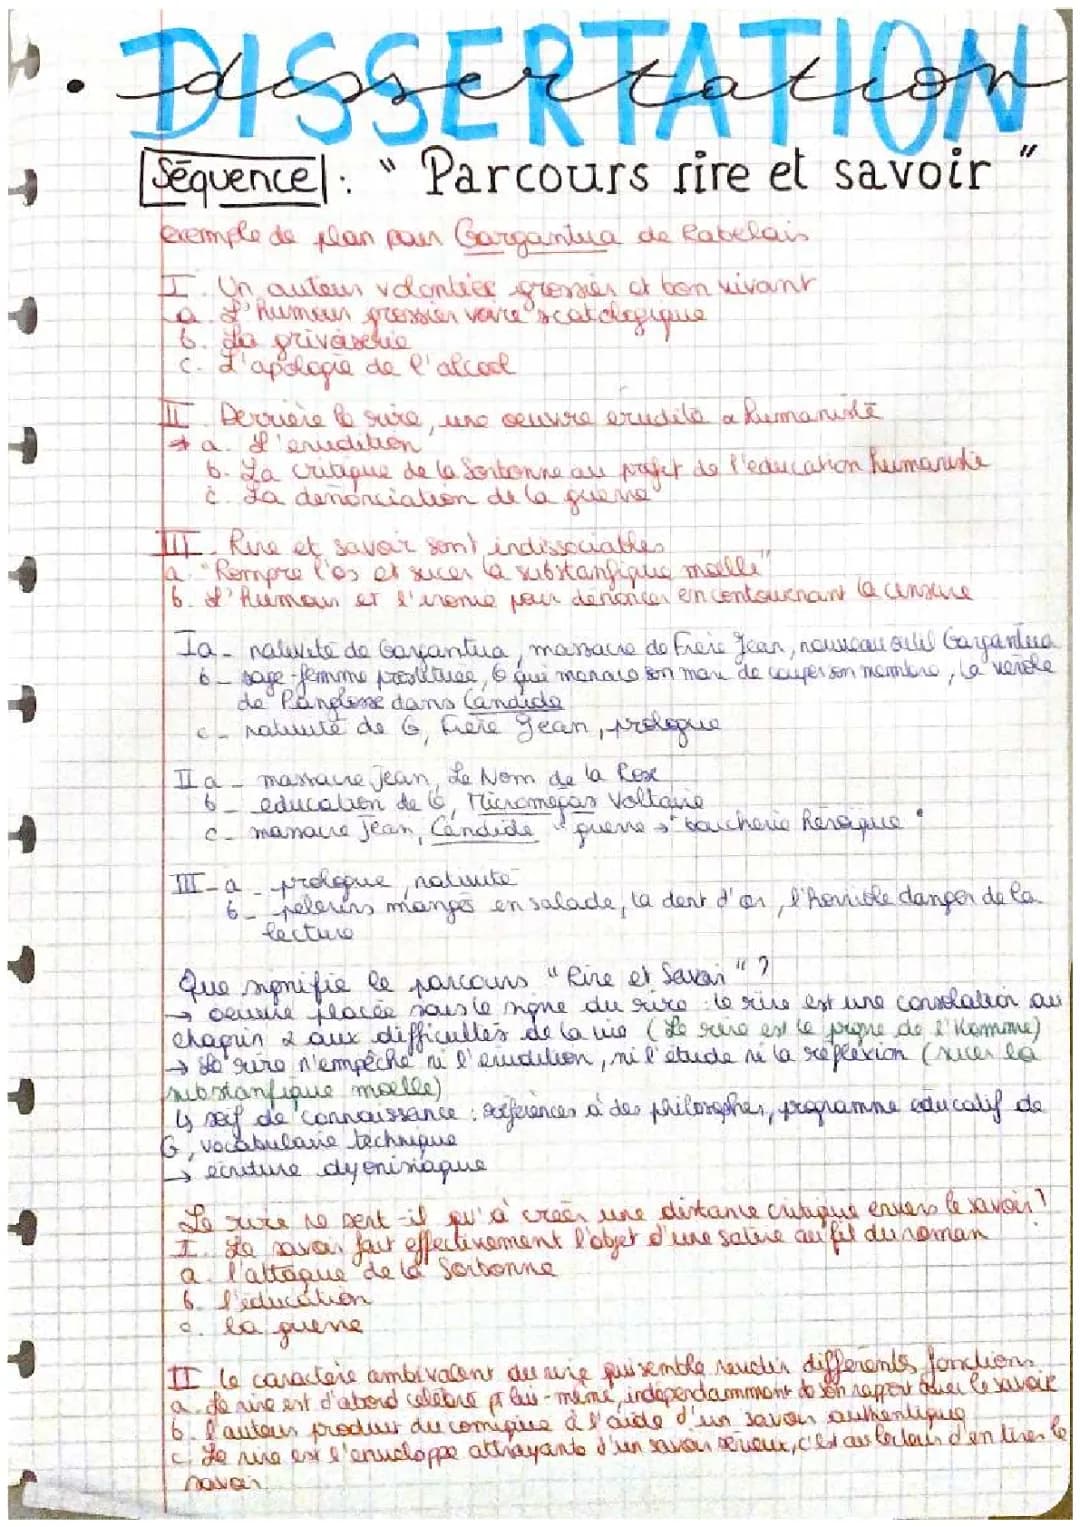 DISSERTATION
• dissertation
Séquence : " Parcours rire et savoir "
exemple de plan pour Gargantua de Rabelais
I. Un auteur volontier grossier et bon vivant
a. L'humour grossier voire scatologique
b. La grivoiserie
c. L'apologie de l'alcool
II. Derrière le rire, une oeuvre erudite & humaniste
a. L'erudition
b. La critique de la Sorbonne au profit de l'education humaniste
c. La denonciation de la guerre
III. Rire et savoir sont indissociables
a. "Rompre l'os et sucer la substantifique moelle"
b. L'humour et l'ironie pour dénoncer en contournant la censure
Ia - nativité de Gargantua, massacre de Frère Jean, nouveau outil Gargantua
b - sage-femme prostituée, G qui menace son mari de couper son membre, la verole
de Pangloss dans Candide
c - nativité de G, Frère Jean, prologue
II a - massacre Jean, Le Nom de la Rose
b - education de G, Micromegas Voltaire
c - massacre Jean, Candide "guerre → boucherie héroïque"
III - a - prologue, nativité
b - pelerins mangés en salade, la dent d'or, l'horrible danger de la
lecture
Que signifie le parcours "Rire et Savoir" ?
→ oeuvre placée sous le signe du rire : le rire est une consolation au
chagrin & aux difficultés de la vie (Le rire est le propre de l'Homme)
→ Le rire n'empêche ni l'erudition, ni l'étude ni la réflexion (sucer la
substantifique moelle)
↳ soif de connaissance : références à des philosophes, programme éducatif de
G, vocabulaire technique
→ écriture dyonisiaque
Le rire ne sert-il qu'à créer une distance critique envers le savoir ?
I. Le savoir fait effectivement l'objet d'une satire au fil du roman
a. l'attaque de la Sorbonne
b. l'éducation
c. la guerre
II Le caractère ambivalent du rire qui semble revêtir différents fonctions
a. Le rire est d'abord célébré pr lui-même, independamment de son rapport avec le savoir
b. l'auteur produit du comique à l'aide d'un savoir authentique
c. Le rire est l'enveloppe attrayante d'un savoir sérieux, c'est au lecteur d'en tirer le
savoir.